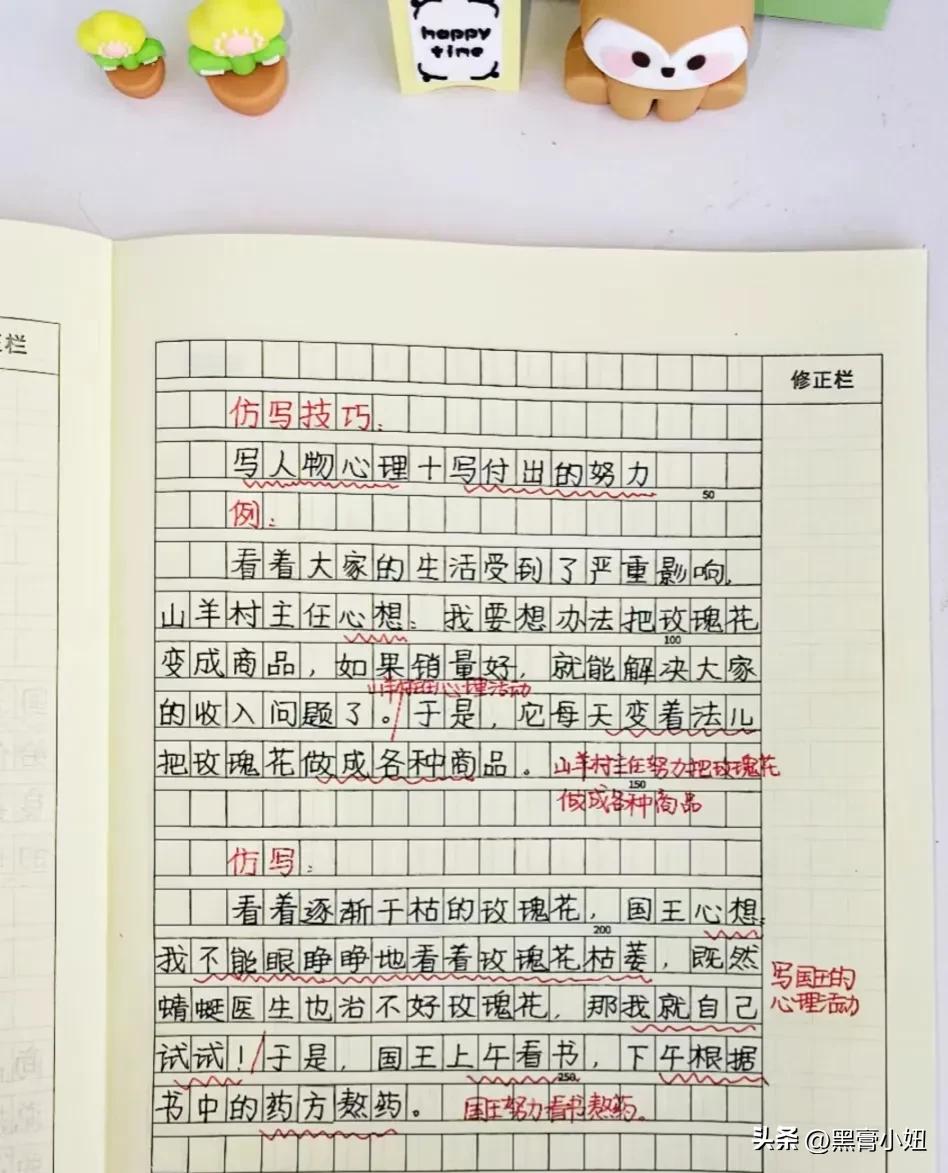 happy
time
正栏
修正栏
仿写技巧:
写人物心理+写付出的努力
50
例:
看着大家的生活受到了严重影响,
山羊村主任心想:我要想办法把玫瑰花
100
变成商品,如果销量好,就能解决大家
山羊村主任心理活动
的收入问题了。于是,它每天变着法儿
把玫瑰花做成各种商品。
山羊村主任努力把玫瑰花
150
做成各种商品
仿写:
看着逐渐干枯的玫瑰花,国王心想:
200
我不能眼睁睁地看着玫瑰花枯萎,既然
写国王的
心理活动
蜻蜓医生也治不好玫瑰花,那我就自己
试试!于是,国王上午看书,下午根据
250
书中的药方熬药。
国王努力看书熬药。
头条 @黑膏小妞